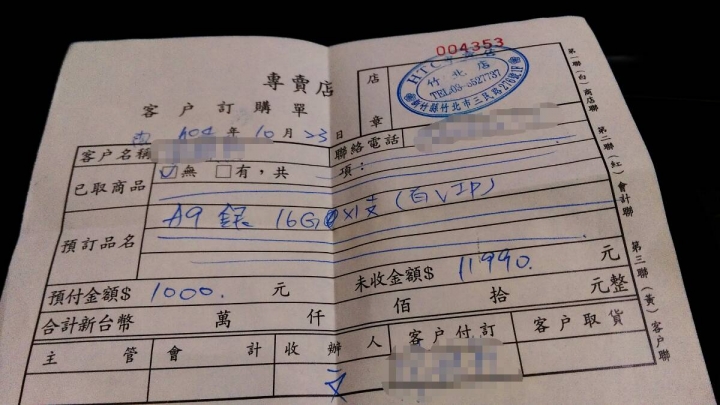 004353
專賣店
客户訂購單
店章
HTC專賣店
竹北店
TEL:03-5527737
新竹縣竹北市三民路276號1F
104年10月23日
客户名稱
聯絡電話
已取商品 ☑無 □有，共 項：
預訂品名 A9 銀 16G×1支 (白VIP)
預付金額$ 1000. 元 未收金額$ 11990. 元
合計新台幣 萬 仟 佰 拾 元整
主管 會計 收辦人 客户付訂 客户取貨
第一聯(白)商店聯 第二聯(紅)會計聯 第三聯(黃)客户聯